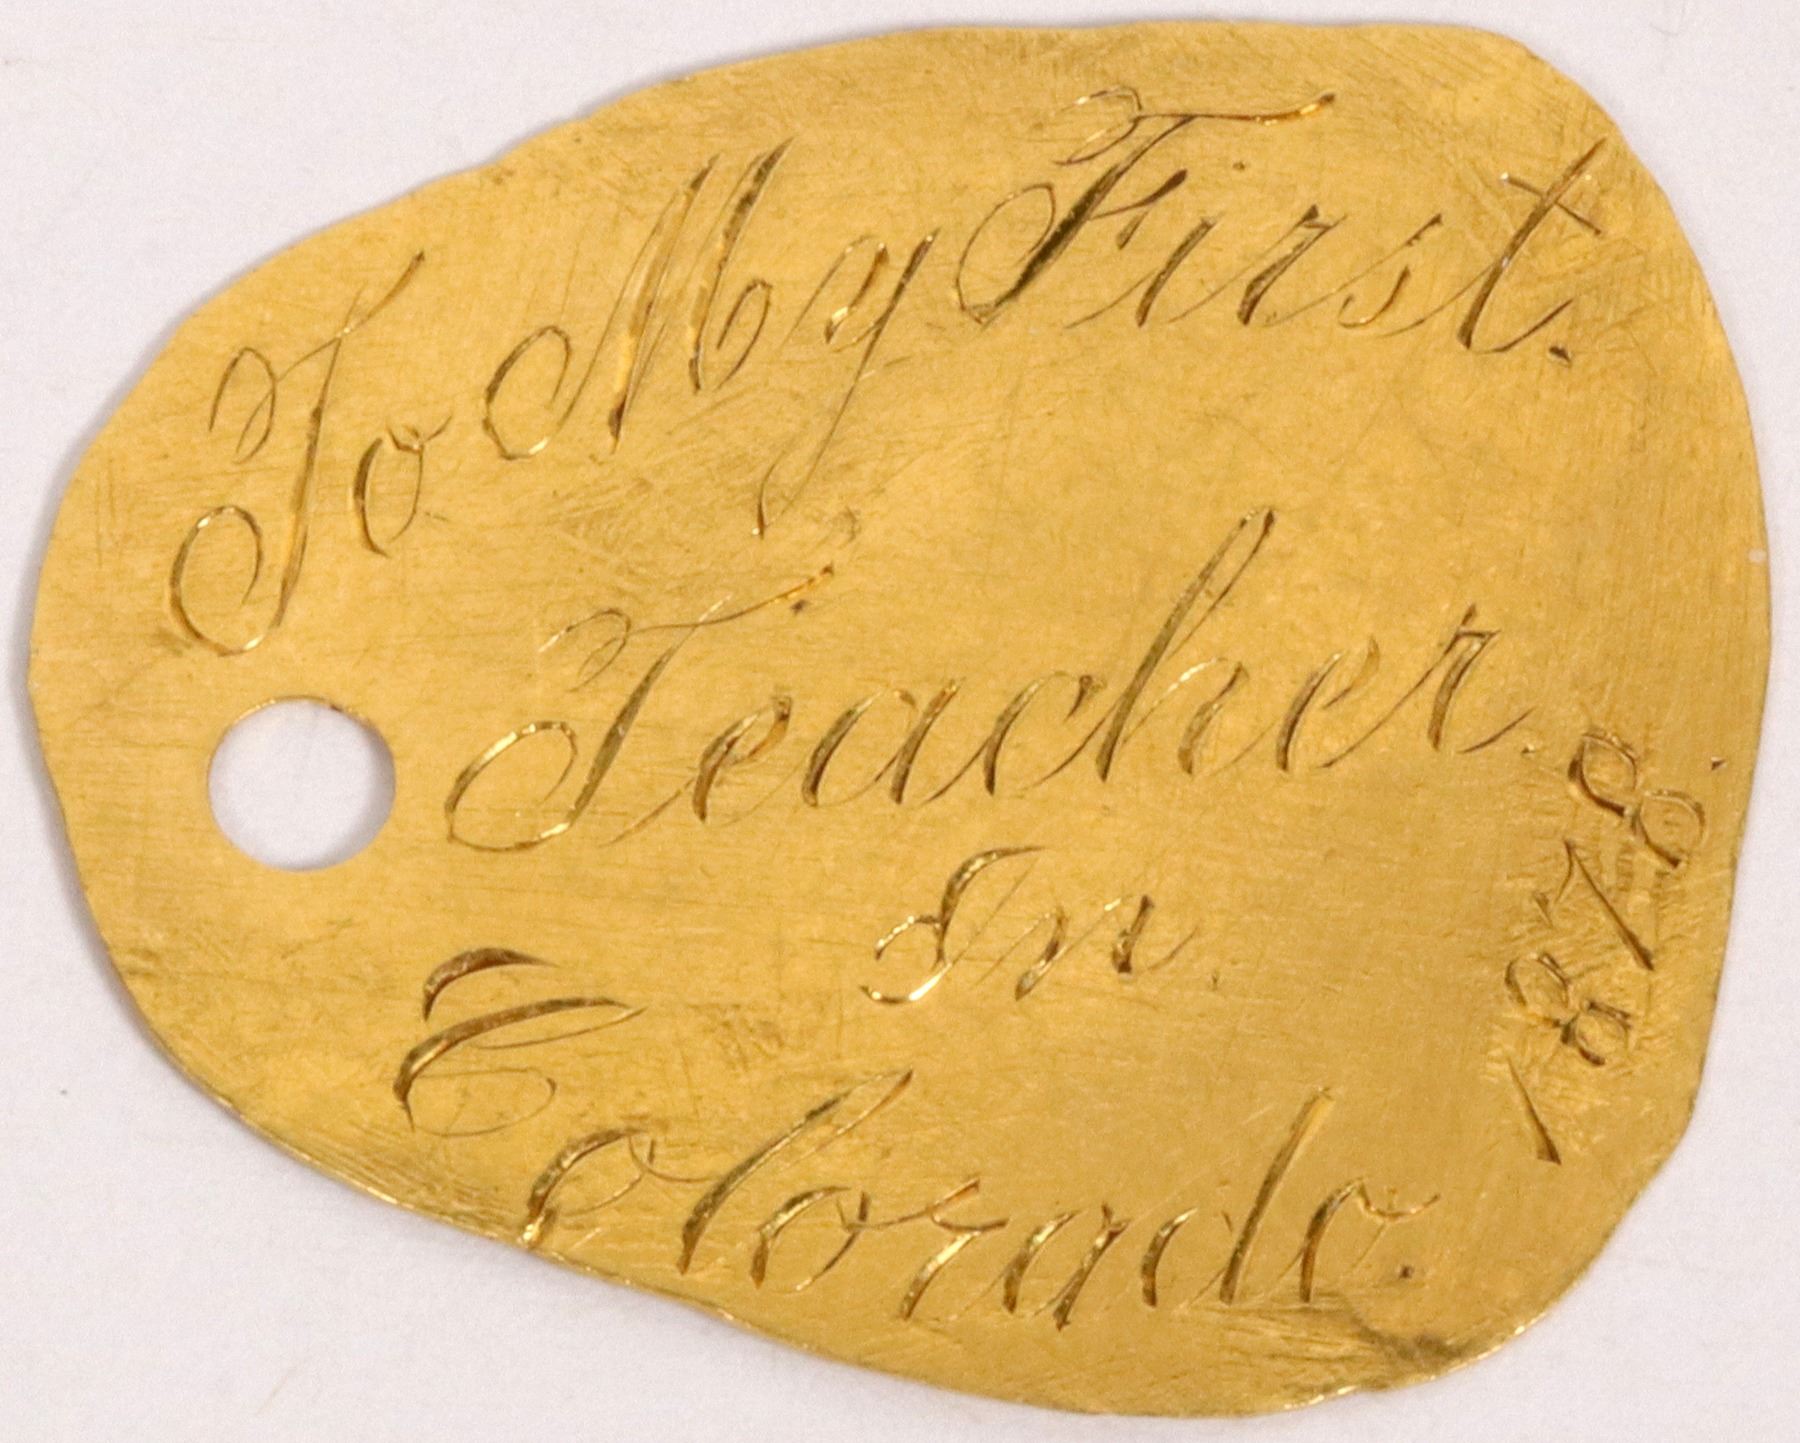 To My First.
Teacher.
In.
Colorado.
1878.